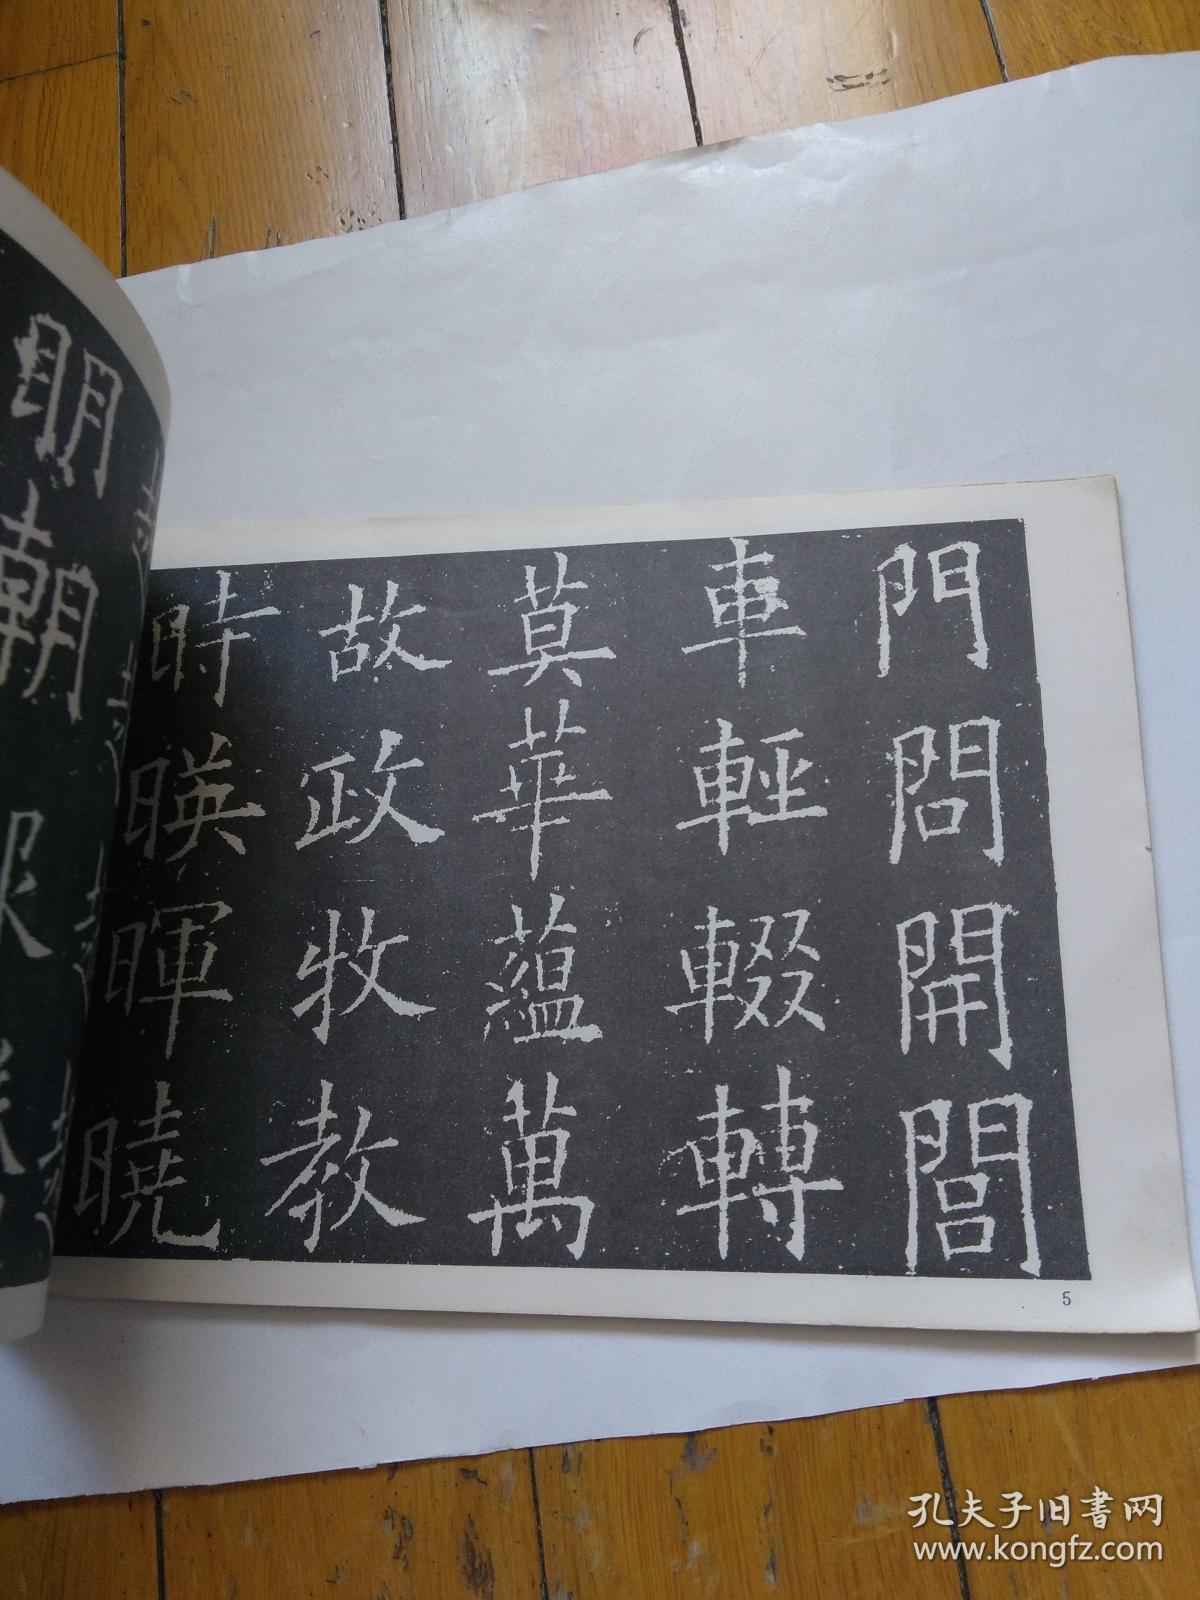 門問開閭
車輕輟轉
莫華蘊萬
故政牧教
時暎暉曉
5
明朝
孔夫子旧書网
www.kongfz.com